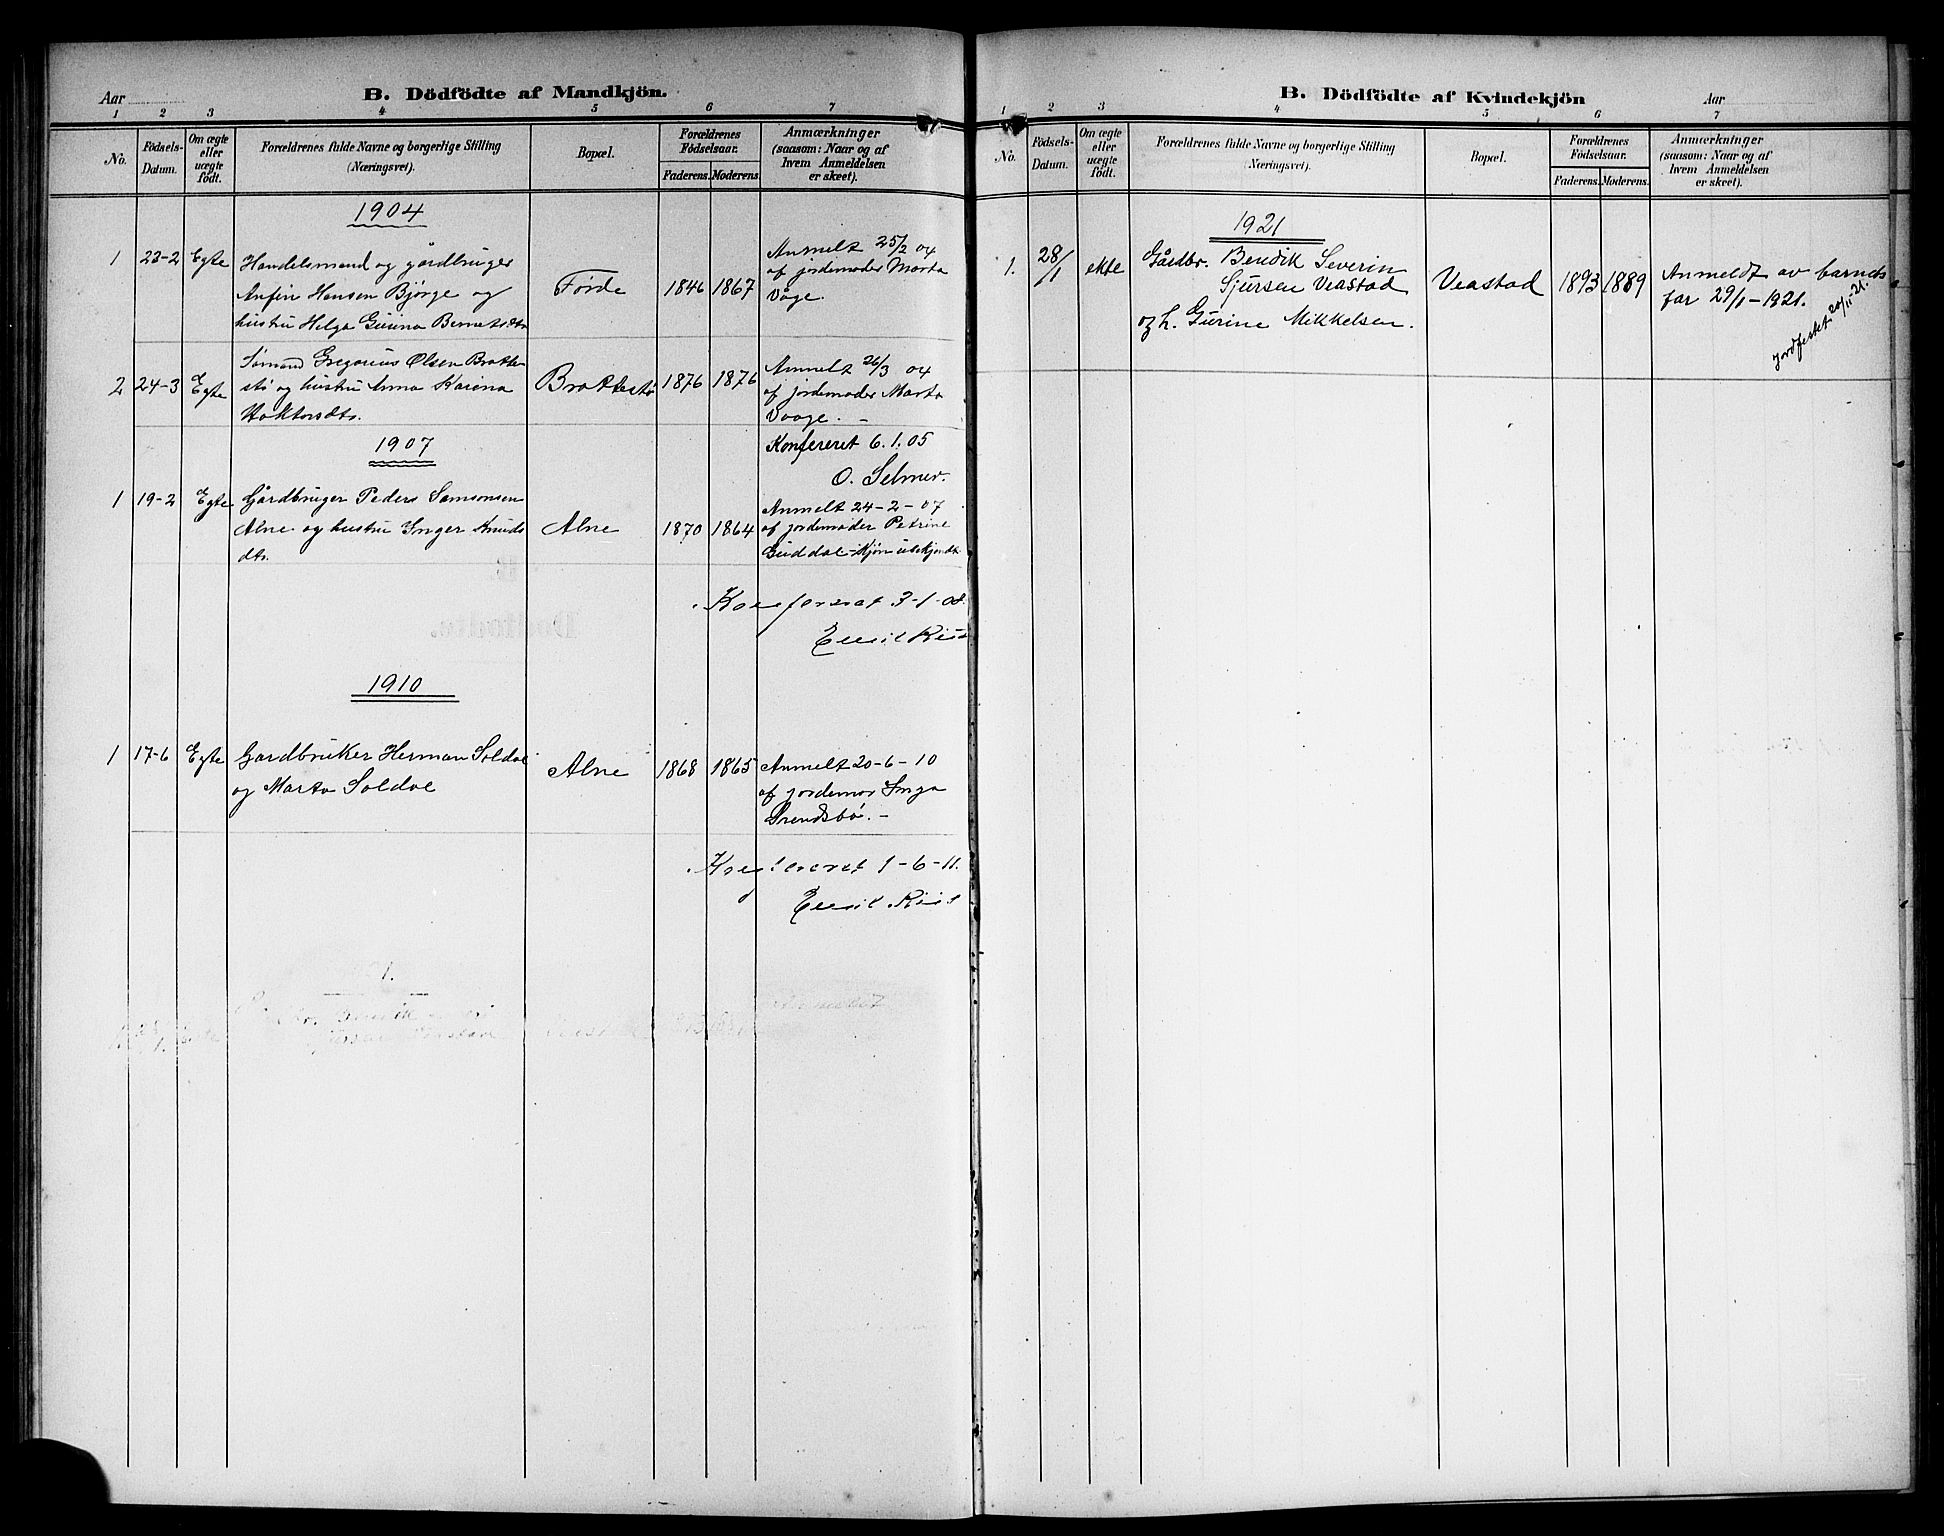 Aar
B. Dödfödte af Mandkjön.
1 2 3 4 5 6 7
No.
Födsels-Datum.
Om ægte eller uægte födt.
Forældrenes fulde Navne og borgerlige Stilling
(Næringsvei).
Bopæl.
Forældrenes Födselsaar.
Faderens. Moderens.
Anmærkninger
(saasom: Naar og af
hvem Anmeldelsen
er skeet).
1904
1 23-2 Egte Handelsmand og gårdbruger
Anfin Hansen Bjørge og
hustru Helga Gurina Berntsdtr
Førde 1846 1867
Anmelt 25/2 04
af jordemoder Marta
Våge.
2 24-3 Egte Sømand Gregorius Olsen Bratte-
stø og hustru Anna Karina
Haktorsdtr.
Brattestø 1876 1876
Anmelt 26/3 04
af jordemoder Marta
Vaage. -
Konfereret 6.1.05
O. Selmer.
1907
1 19-2 Egte Gårdbruger Peders Samsonsen
Alne og hustru Inger Knuds
dtr.
Alne 1870 1864
Anmelt 24-2-07
af jordemoder Petrine
Guddal - Kjøn ubekjendt.
Konfereret 3-1-08.
Emil Riis
1910
1 17-6 Egte Gardbruker Herman Soldal
og Marta Soldal
Alne 1868 1865
Anmelt 20-6-10
af jordemor Inga
Konfereret 1-6-11.
Emil Riis
B. Dödfödte af Kvindekjön
Aar
1 2 3 4 5 6 7
No.
Födsels-Datum.
Om ægte eller uægte födt.
Forældrenes fulde Navne og borgerlige Stilling
(Næringsvei).
Bopæl.
Forældrenes Födselsaar.
Faderens. Moderens.
Anmærkninger
(saasom: Naar og af
hvem Anmeldelsen
er skeet).
1921
1. 28/1 ekte Gårdbr. Bendik Severin
Sjursen Veastad
og h. Gurine Mikkelsen.
Veastad 1893 1889
Anmeldt av barnets
far 29/1-1921.
Jordfestet 20/11-21.